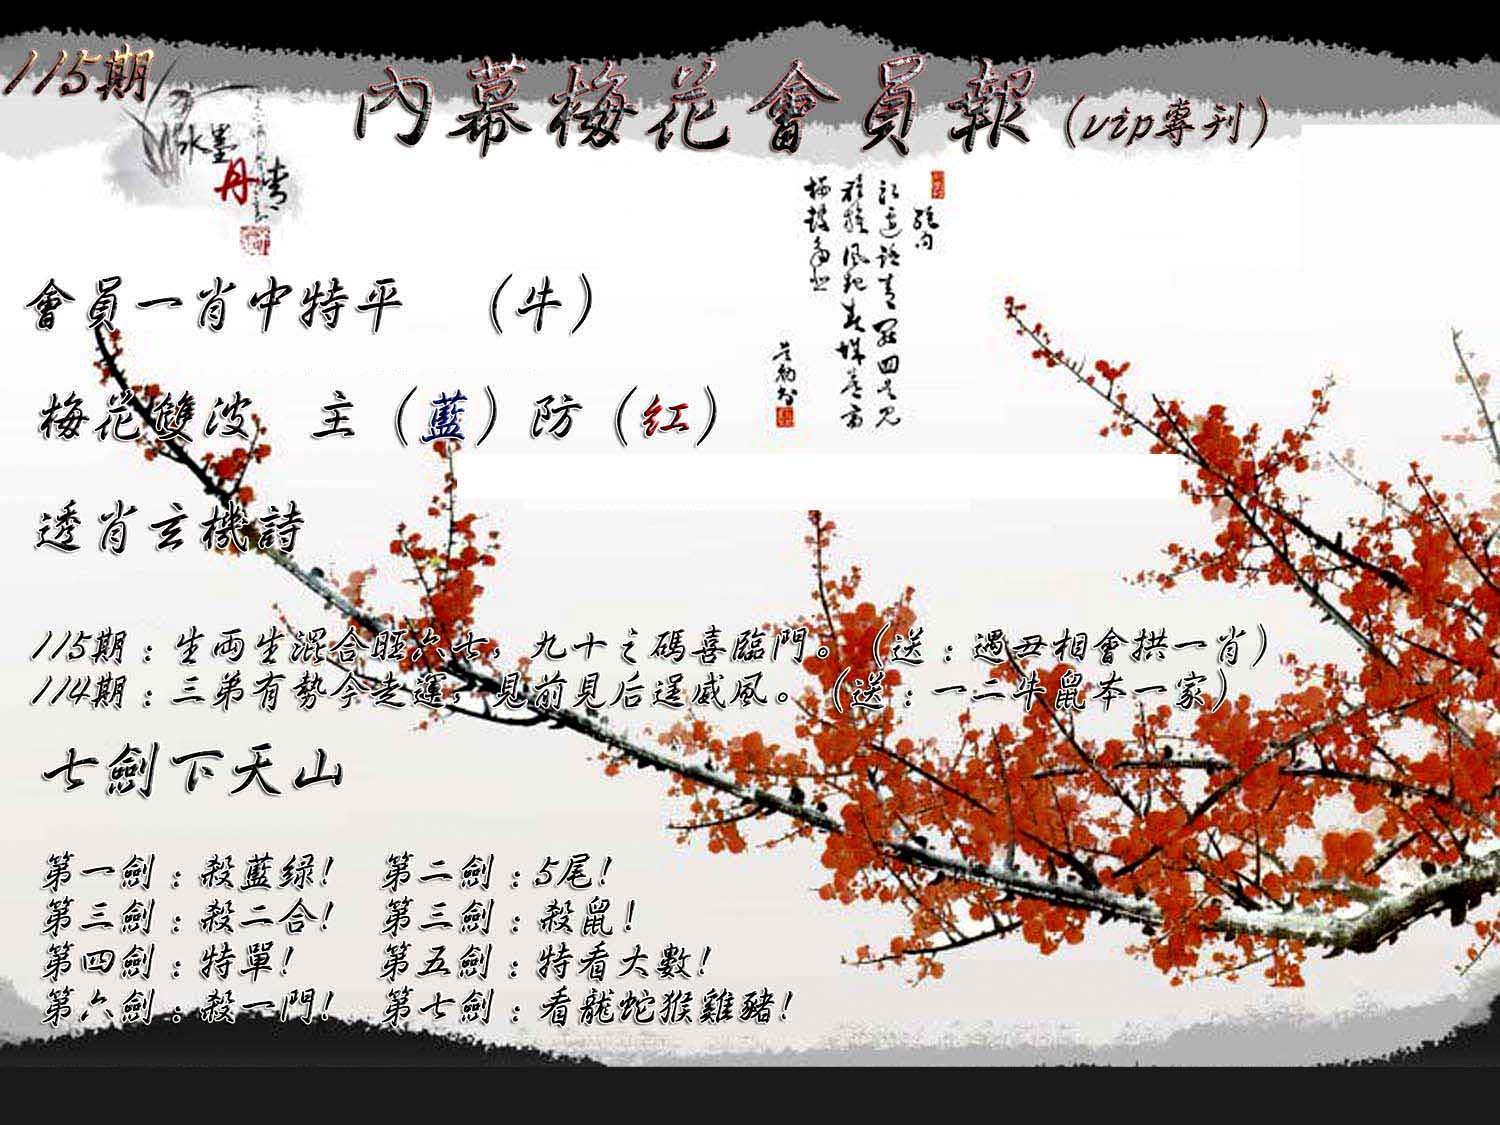 115期
內幕梅花會員報(vip專刊)
水墨
丹青
會員一肖中特平 (牛)
梅花雙波 主(藍)防(紅)
透肖玄機詩
115期：生両生混合旺六七，九十之碼喜臨門。(送：遇丑相會拱一肖)
114期：三弟有勢今走運，見前見后逞威風。(送：一二牛鼠本一家)
七劍下天山
第一劍：殺藍绿! 第二劍：5尾!
第三劍：殺二合! 第三劍：殺鼠!
第四劍：特單! 第五劍：特看大數!
第六劍：殺一門! 第七劍：看龍蛇猴雞豬!